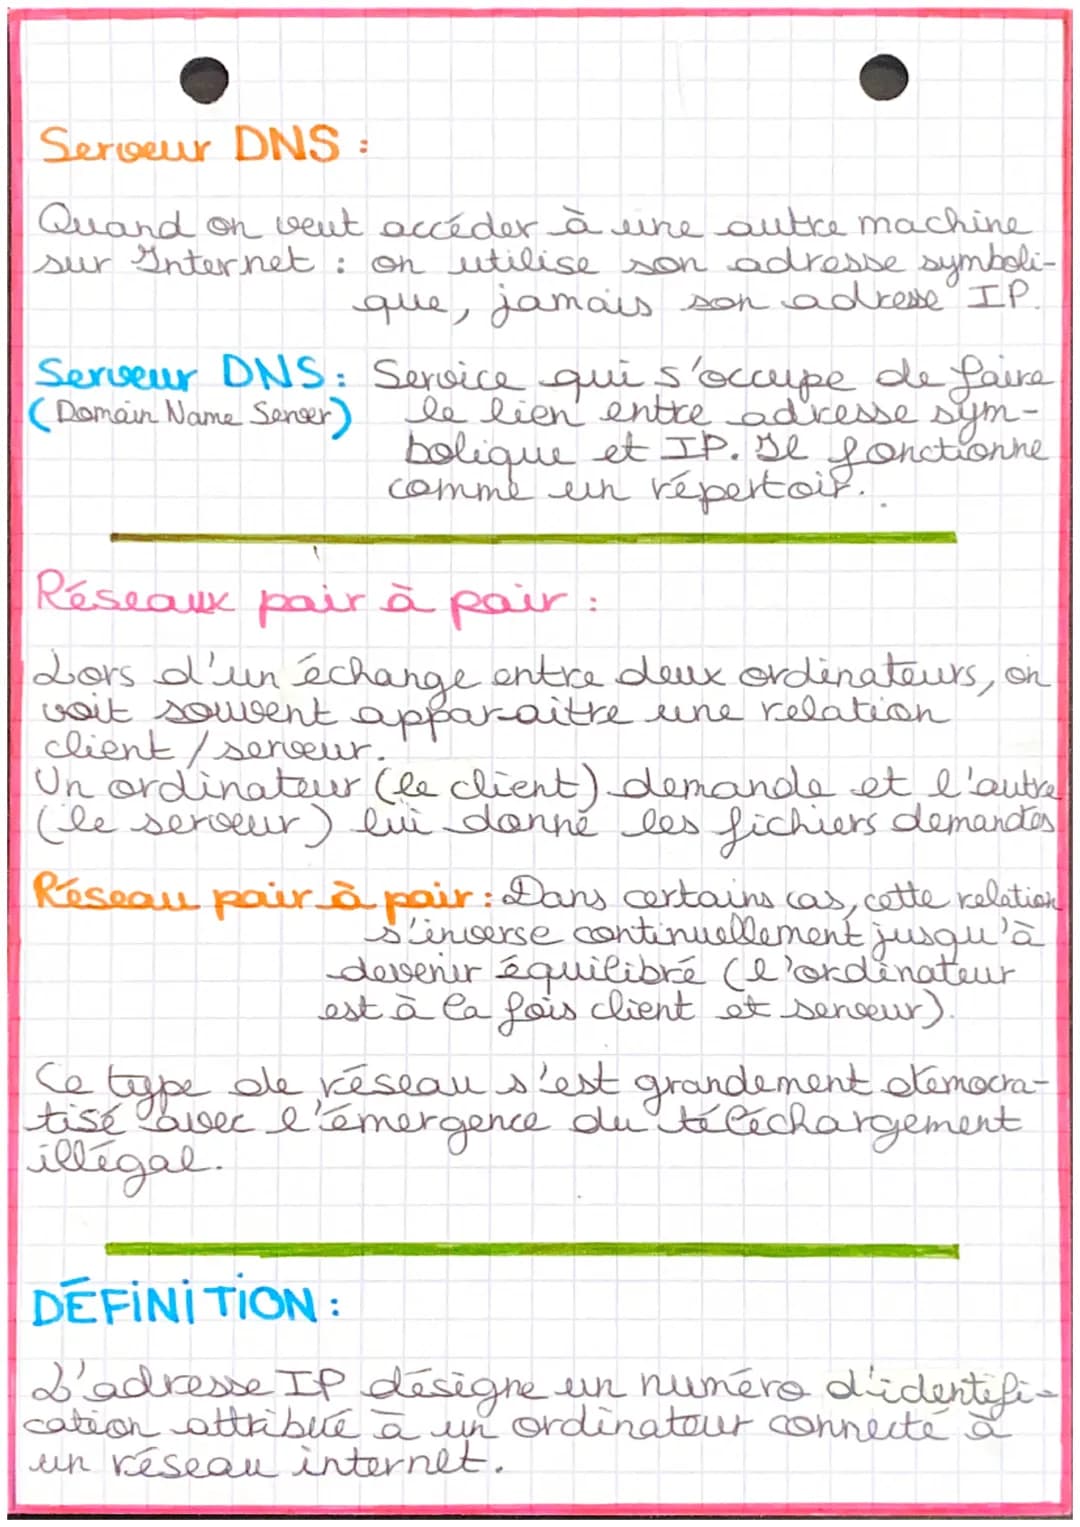 Serveur DNS :
Quand on veut accéder à une autre machine
sur Internet : on utilise son adresse symboli-
que, jamais son adresse IP.
Serveur DNS : Service qui s'occupe de faire
(Domain Name Server) le lien entre adresse sym-
bolique et IP. Il fonctionne
comme un répertoir.
Réseaux pair à pair :
Lors d'un échange entre deux ordinateurs, on
voit souvent apparaitre une relation
client / serveur.
Un ordinateur (le client) demande et l'autre
(le serveur) lui donne les fichiers demandés
Réseau pair à pair : Dans certains cas, cette relation
s'inverse continuellement jusqu'à
devenir équilibré (l'ordinateur
est à la fois client et serveur).
Ce type de réseau s'est grandement démocra-
tisé avec l'émergence du téléchargement
illégal.
DÉFINITION :
L'adresse IP désigne un numéro d'identifi-
cation attribué à un ordinateur connecté à
un réseau internet.